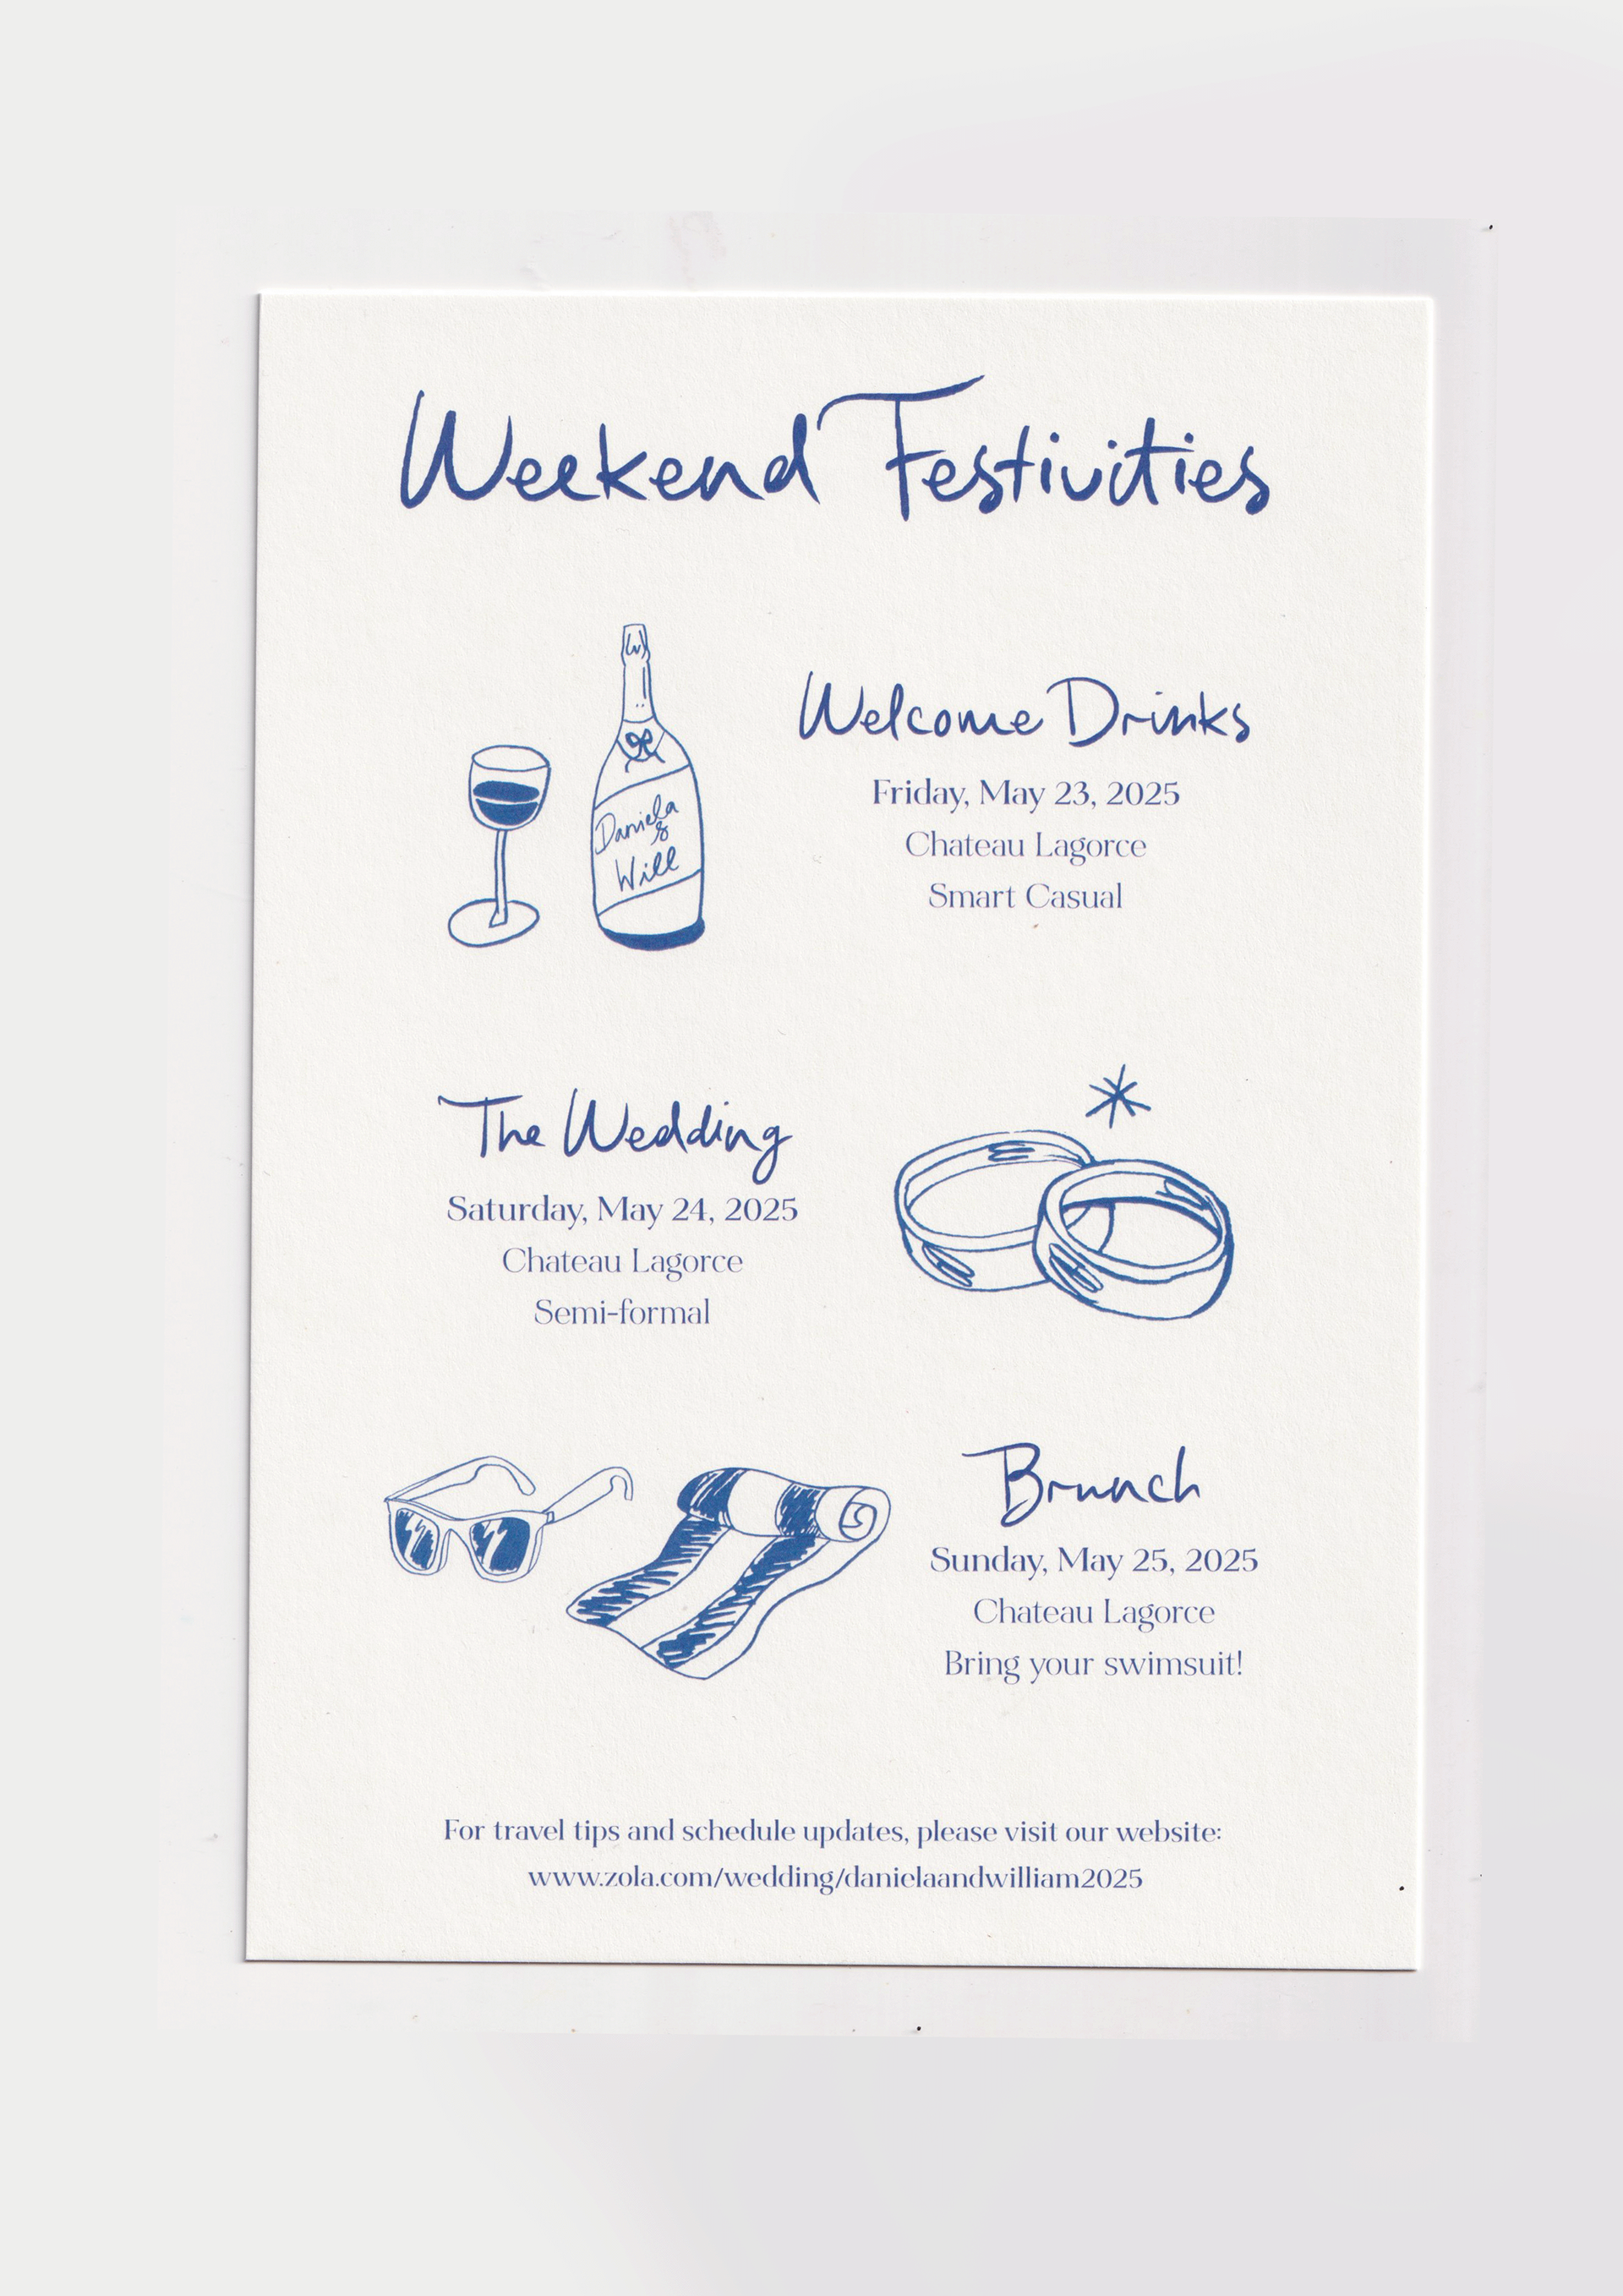 Weekend Festivities
Daniela
&
Will
Welcome Drinks
Friday, May 23, 2025
Chateau Lagorce
Smart Casual
The Wedding
Saturday, May 24, 2025
Chateau Lagorce
Semi-formal
Brunch
Sunday, May 25, 2025
Chateau Lagorce
Bring your swimsuit!
For travel tips and schedule updates, please visit our website:
www.zola.com/wedding/danielaandwilliam2025